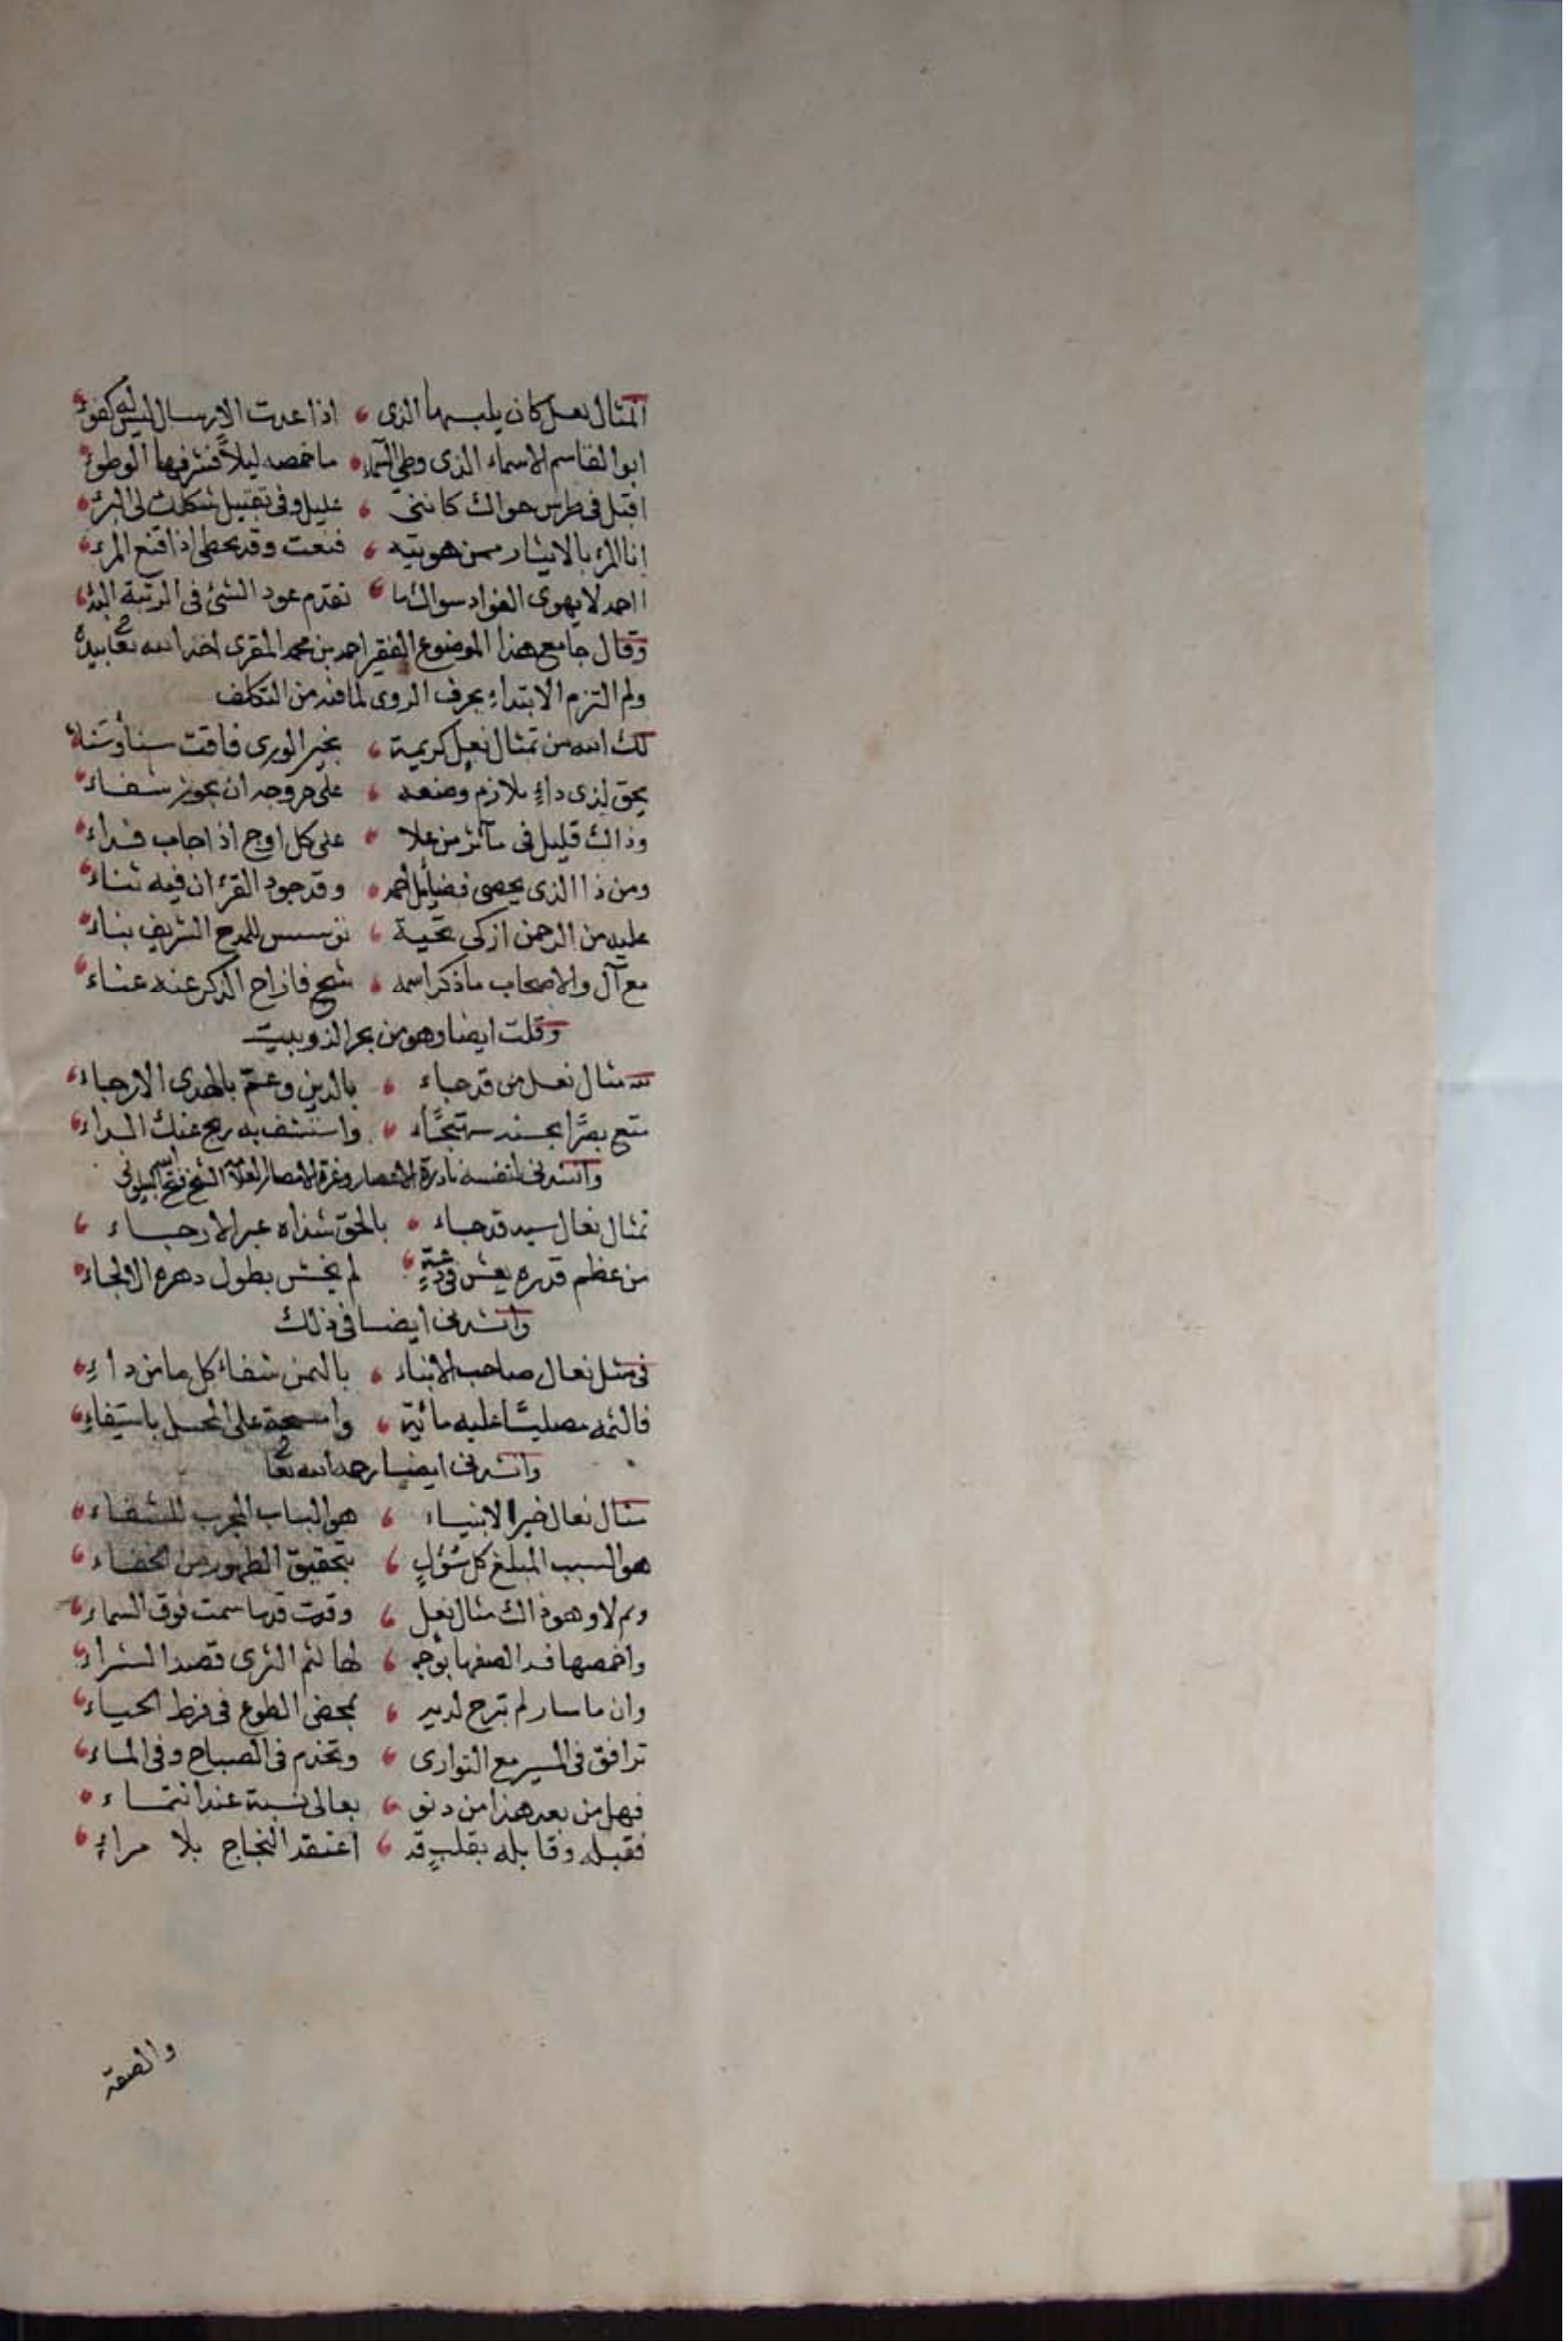 المثال نعل كان يلبسها الذى ، اذا عدت الارسال ليس له كفؤ
ابو القاسم الاسماء الذى وطئ السماء ، باخمصه ليلاً فشرفها الوطؤ
اقبل فى طرس حواك كاننى ، عليل وفى تقبيل شكلك لى البرء
انا المرء بالايثار ممن هويته ، قنعت وقد يحظى اذا قنع المرء
ااحمد لا يهوى الفواد سواك ما ، تقدم عود الشئ فى الرتبة البدء
وقال جامع هذا الموضوع الفقير احمد بن محمد المقرى اخذ الله تعا بيده
ولم التزم الابتداء بحرف الروى لما فيه من التكلف
لك الله من تمثال نعل كريمة ، بخير الورى فاقت سنا وسناء
يحق لذى داء يلازم وضعه ، على حر وجه ان يحوز شفاء
وذاك قليل فى مآثر من علا ، على كل اوج اذ اجاب نداء
ومن ذا الذى يحصى فضائل احمد ، وقد جود القرءان فيه ثناء
عليه من الرحمن ازكى تحية ، تؤسس للمدح الشريف بناء
مع آل والاصحاب ما ذكر اسمه ، شج فازاح الذكر عنه عناء
وقلت ايضا وهو من بحر الذوبيت
لله مثال نعل من قد جاء ، بالدين وعم بالهدى الارجاء
متع بصرًا بحسنه ، واستشف به يزح عنك الداء
وانشدنى لنفسه نادرة الاعصار وغرة الامصار العلامة الشيخ فتح الله البيلونى
تمثال نعال سيد قد جاء ، بالحق شذاه عبر الارجاء
من عظم قدره يعش فى ، لم يخش بطول دهره الالجاء
وانشدنى ايضا فى ذلك
فى مثل نعال صاحب الانباء ، باليمن شفاء كل ما من داءٍ
فالثمه مصليًا عليه مائية ، وامسحه على المحل باستيفاءٍ
وانشدنى ايضا رحمه الله تعا
مثال نعال خير الانبياء ، هو الباب المجرب للشفاء
هو السبب المبلغ كل سؤلٍ ، بتحقيق الظهور من الخفاء
ولم لا وهو ذاك مثال نعل ، وقت قدما سمت فوق السماء
واخمصها قد الصقها بوجه ، لها لثم الثرى قصد الشراء
وان ما سار لم تبرح لديه ، بمحض الطوع فى فرط الحياء
ترافق فى المسير مع التوارى ، وتخدم فى الصباح وفى المساء
فهل من بعد هذا من دنو ، بعالى نسبة عند انتماء
فقبله وقابله بقلبٍ قد ، اعتقد النجاح بلا مراءٍ
والصقه